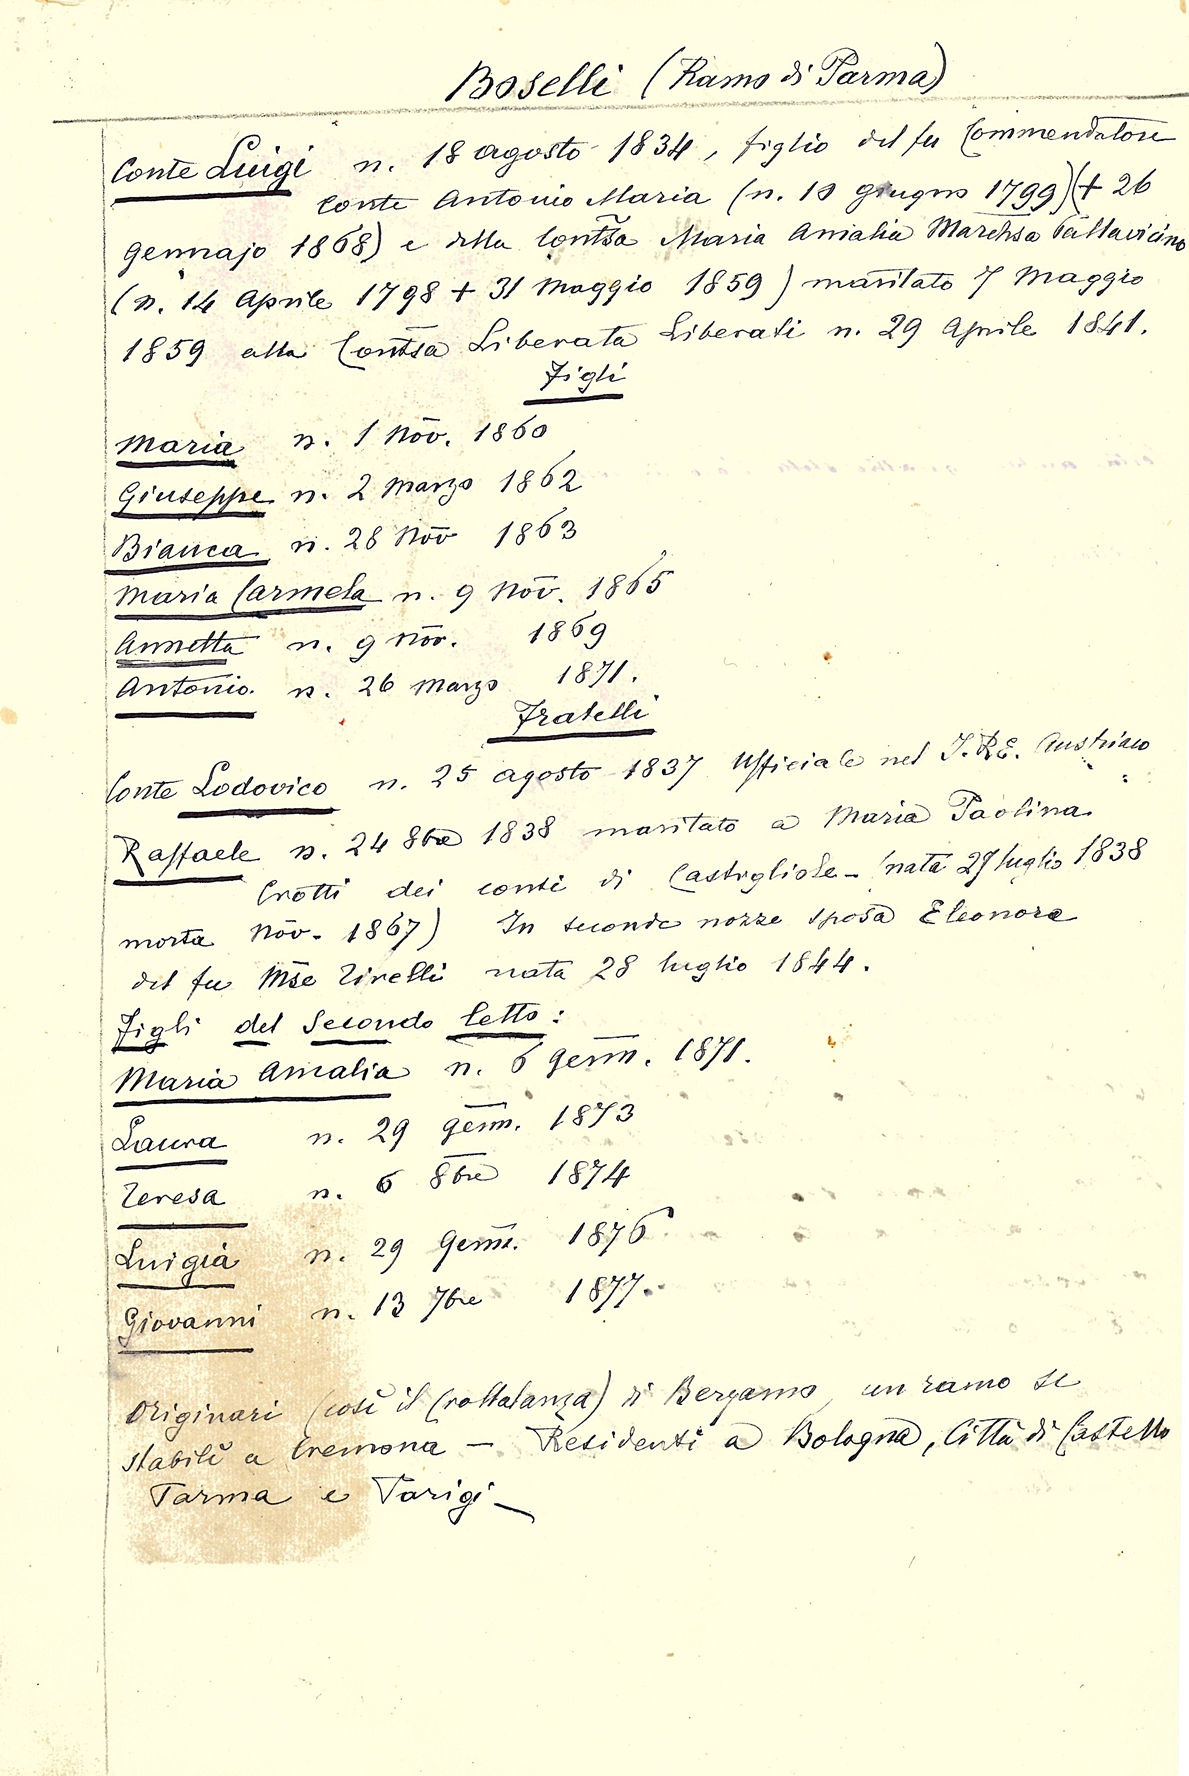 Boselli (Ramo di Parma)
Conte Luigi n. 18 agosto 1834, figlio del fu Commendatore
Conte Antonio Maria (n. 10 giugno 1799) († 26
gennajo 1868) e della Contssa Maria Amalia Marchsa Pallavicino
(n. 14 Aprile 1798 † 31 Maggio 1859) maritato 7 Maggio
1859 alla Contssa Liberata Liberati n. 29 Aprile 1841.
Figli
Maria n. 1 Nov. 1860
Giuseppe n. 2 Marzo 1862
Bianca n. 28 Nov 1863
Maria Carmela n. 9 Nov. 1865
Annetta n. 9 Nov. 1869
Antonio. n. 26 Marzo 1871.
Fratelli
Conte Lodovico n. 25 agosto 1837 Ufficiale nel I. R. E. Austriaco
Raffaele n. 24 8bre 1838 maritato a Maria Paolina
Crotti dei conti di Castigliole - (nata 27 luglio 1838
morta Nov. 1867) In seconde nozze sposa Eleonora
del fu Mse Tirelli nata 28 luglio 1844.
Figli del Secondo letto:
Maria Amalia n. 6 Genn. 1871.
Laura n. 29 genn. 1873
Teresa n. 6 8bre 1874
Luigia n. 29 Genn. 1876
Giovanni n. 13 7bre 1877.
Originari (così il Crollalanza) di Bergamo, un ramo si
stabilì a Cremona - Residenti a Bologna, Città di Castello
Parma e Parigi -